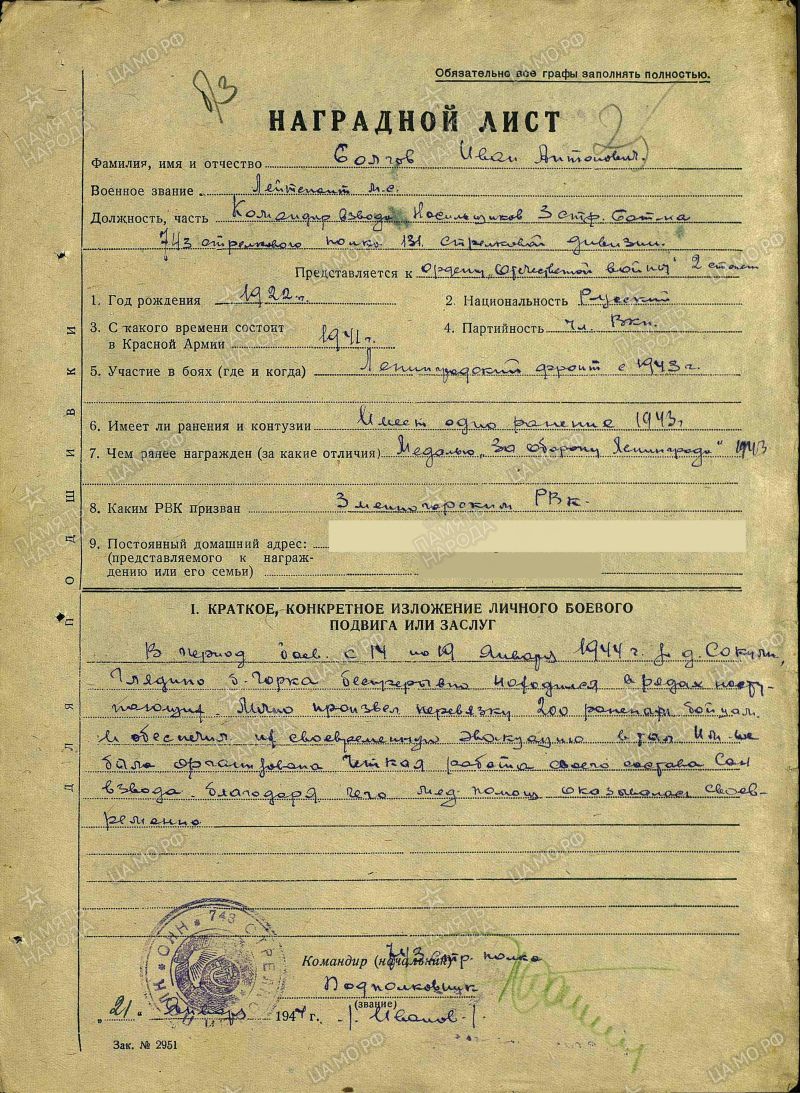 Обязательно все графы заполнять полностью.
НАГРАДНОЙ ЛИСТ
Фамилия, имя и отчество Болгов Иван Антонович.
Военное звание Лейтенант м.с.
Должность, часть Командир взвода Носильщиков 3 стр. бат-на
743 стрелкового полка 131 стрелковой дивизии.
Представляется к Ордену „Отечественной войны" 2 степен
1. Год рождения 1922 г. 2. Национальность Русский
3. С какого времени состоит в Красной Армии 1941 г. 4. Партийность чл. ВКП.
5. Участие в боях (где и когда) Ленинградский фронт с 1943 г.
6. Имеет ли ранения и контузии Имеет одно ранение 1943 г
7. Чем ранее награжден (за какие отличия) Медалью „За оборону Ленинграда" 1943
8. Каким РВК призван Змеиногорским РВК.
9. Постоянный домашний адрес:
(представляемого к награж-
дению или его семьи)
I. КРАТКОЕ, КОНКРЕТНОЕ ИЗЛОЖЕНИЕ ЛИЧНОГО БОЕВОГО
ПОДВИГА ИЛИ ЗАСЛУГ
В период боев с 14 по 19 января 1944 г. д. Сокули,
Глядино б-Горка бесперебывно находился в рядах насту-
пающих. Лично произвел перевязку 200 раненым бойцам
и обеспечил их своевременную эвакуацию в тыл Им же
была организована четкая работа своего состава Сан
взвода. благодаря чего мед. помощь оказывалась свое-
временно
Командир (начальник) 743 стр. полка
Подполковник
(звание)
„21" января 1944 г. /Иванов/
743 СТРЕЛК
Зак. № 2951
ДЛЯ ПОДШИВКИ
ПАМЯТЬ НАРОДА
ЦАМО.РФ